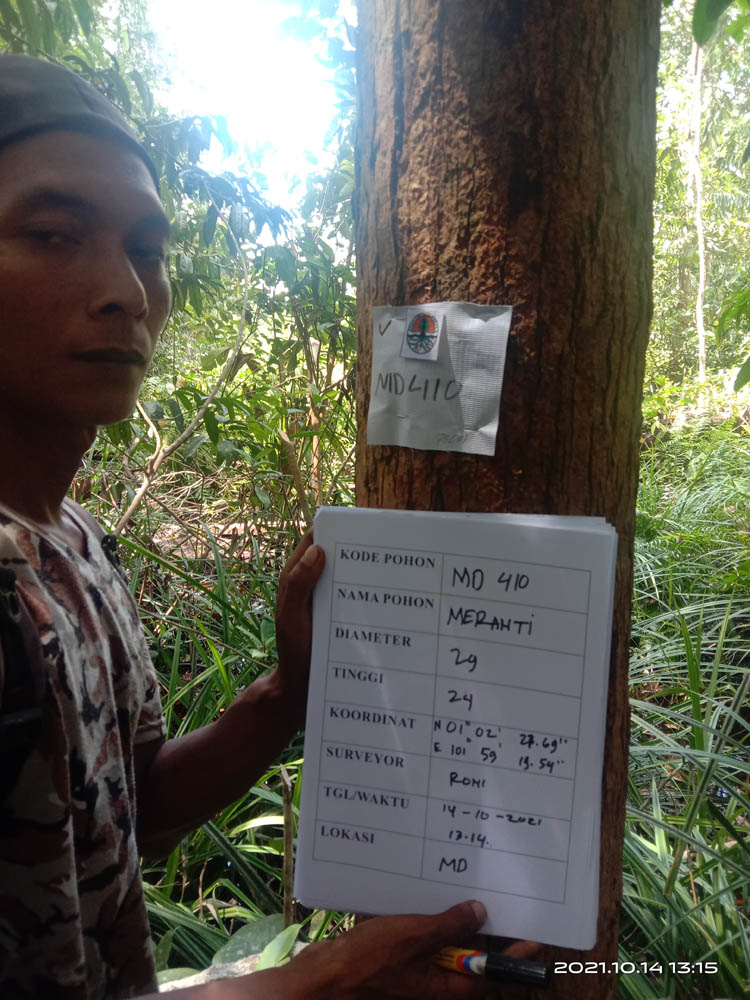 V
MD410
KODE POHON MD 410
NAMA POHON MERANTI
DIAMETER 29
TINGGI 24
KOORDINAT N 01° 02' 27.69"
E 101° 59' 19.54"
SURVEYOR ROMI
TGL/WAKTU 14-10-2021
13.14.
LOKASI MD
2021.10.14 13:15